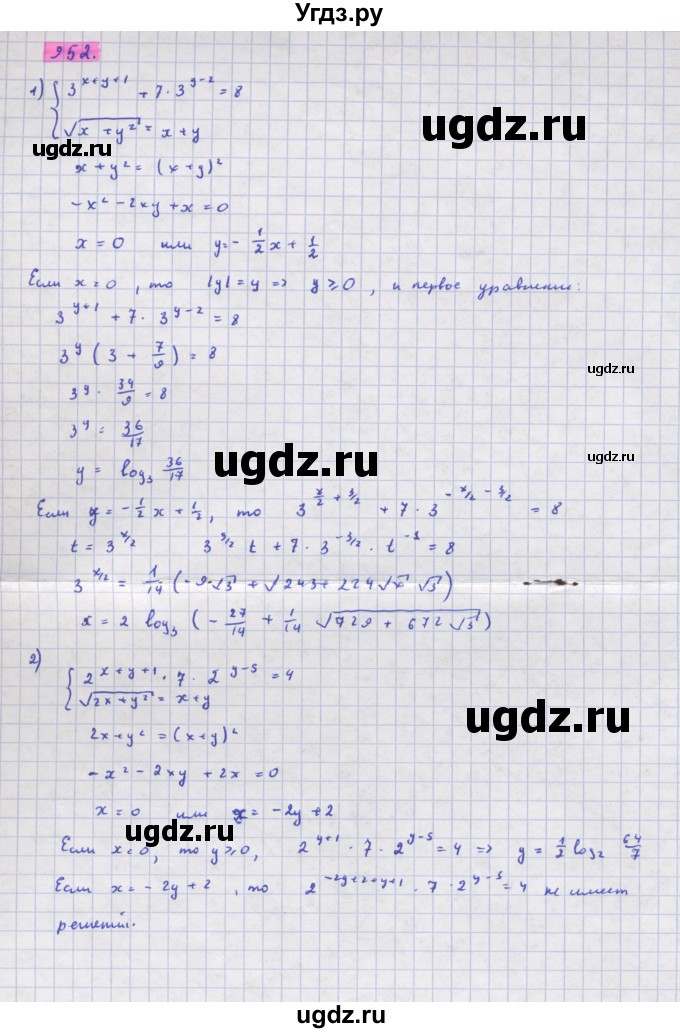 Угдз.ру
952.
1) { 3^{x+y+1} + 7 · 3^{y-2} = 8
√(x + y²) = x + y
ugdz.ru
ugdz.ru
x + y² = (x + y)²
ugdz.ru
-x² - 2xy + x = 0
x = 0 или y = -1/2 x + 1/2
Если x = 0, то |y| = y => y ⩾ 0, и первое уравнение:
3^{y+1} + 7 · 3^{y-2} = 8
3^y (3 + 7/9) = 8
ugdz.ru
3^y · 34/9 = 8
3^y = 36/17
ugdz.ru
ugdz.ru
y = log₃ 36/17
Если y = -1/2 x + 1/2, то 3^{x/2 + 3/2} + 7 · 3^{-x/2 - 3/2} = 8
t = 3^{x/2} 3^{3/2} t + 7 · 3^{-3/2} · t^{-1} = 8
3^{x/2} = 1/14 (-9√3 + √(243 + 224√x √3))
x = 2 log₃ (-27/14 + 1/14 √(729 + 672√3))
2) { 2^{x+y+1} · 7 · 2^{y-5} = 4
√(2x + y²) = x + y
ugdz.ru
2x + y² = (x + y)²
-x² - 2xy + 2x = 0
x = 0 или x = -2y + 2
ugdz.ru
Если x = 0, то y ⩾ 0, 2^{y+1} · 7 · 2^{y-5} = 4 => y = 1/2 log₂ 64/7
ugdz.ru
Если x = -2y + 2, то 2^{-2y+2+y+1} · 7 · 2^{y-5} = 4 не имеет
решений.
ugdz.ru
ugdz.ru